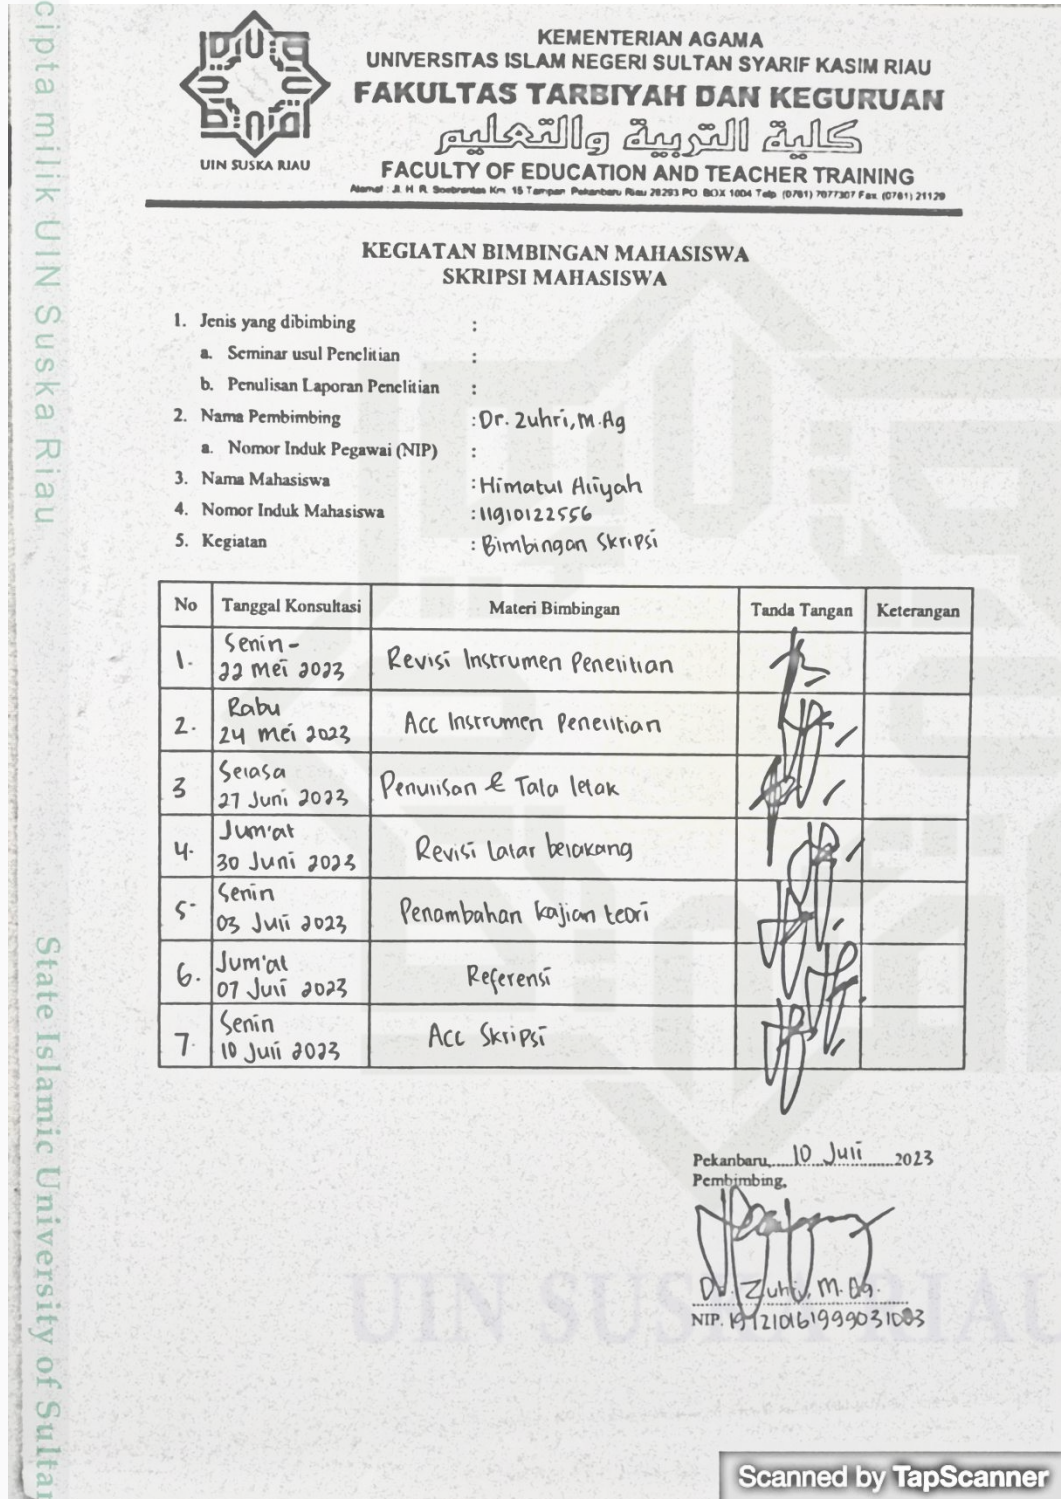 cipta milik UIN Suska Riau
State Islamic University of Sultan
UIN SUSKA RIAU
KEMENTERIAN AGAMA
UNIVERSITAS ISLAM NEGERI SULTAN SYARIF KASIM RIAU
FAKULTAS TARBIYAH DAN KEGURUAN
كلية التربية والتعليم
FACULTY OF EDUCATION AND TEACHER TRAINING
Alamat : Jl. H. R. Soebrantas Km. 15 Tampan Pekanbaru Riau 28293 PO. BOX 1004 Telp. (0761) 7077307 Fax. (0761) 21129
KEGIATAN BIMBINGAN MAHASISWA
SKRIPSI MAHASISWA
1. Jenis yang dibimbing :
a. Seminar usul Penelitian :
b. Penulisan Laporan Penelitian :
2. Nama Pembimbing : Dr. Zuhri, M.Ag
a. Nomor Induk Pegawai (NIP) :
3. Nama Mahasiswa : Himatul Aliyah
4. Nomor Induk Mahasiswa : 11910122556
5. Kegiatan : Bimbingan Skripsi
No Tanggal Konsultasi Materi Bimbingan Tanda Tangan Keterangan
1. Senin - 22 Mei 2023 Revisi Instrumen Penelitian
2. Rabu 24 Mei 2023 Acc Instrumen Penelitian
3 Selasa 27 Juni 2023 Penulisan & Tata letak
4. Jum'at 30 Juni 2023 Revisi latar belakang
5- Senin 03 Juli 2023 Penambahan kajian teori
6. Jum'at 07 Juli 2023 Referensi
7. Senin 10 Juli 2023 Acc Skripsi
Pekanbaru, 10 Juli 2023
Pembimbing,
Dr. Zuhri, M.Ag.
NIP. 197210161999031003
UIN SUSKA RIAU
Scanned by TapScanner